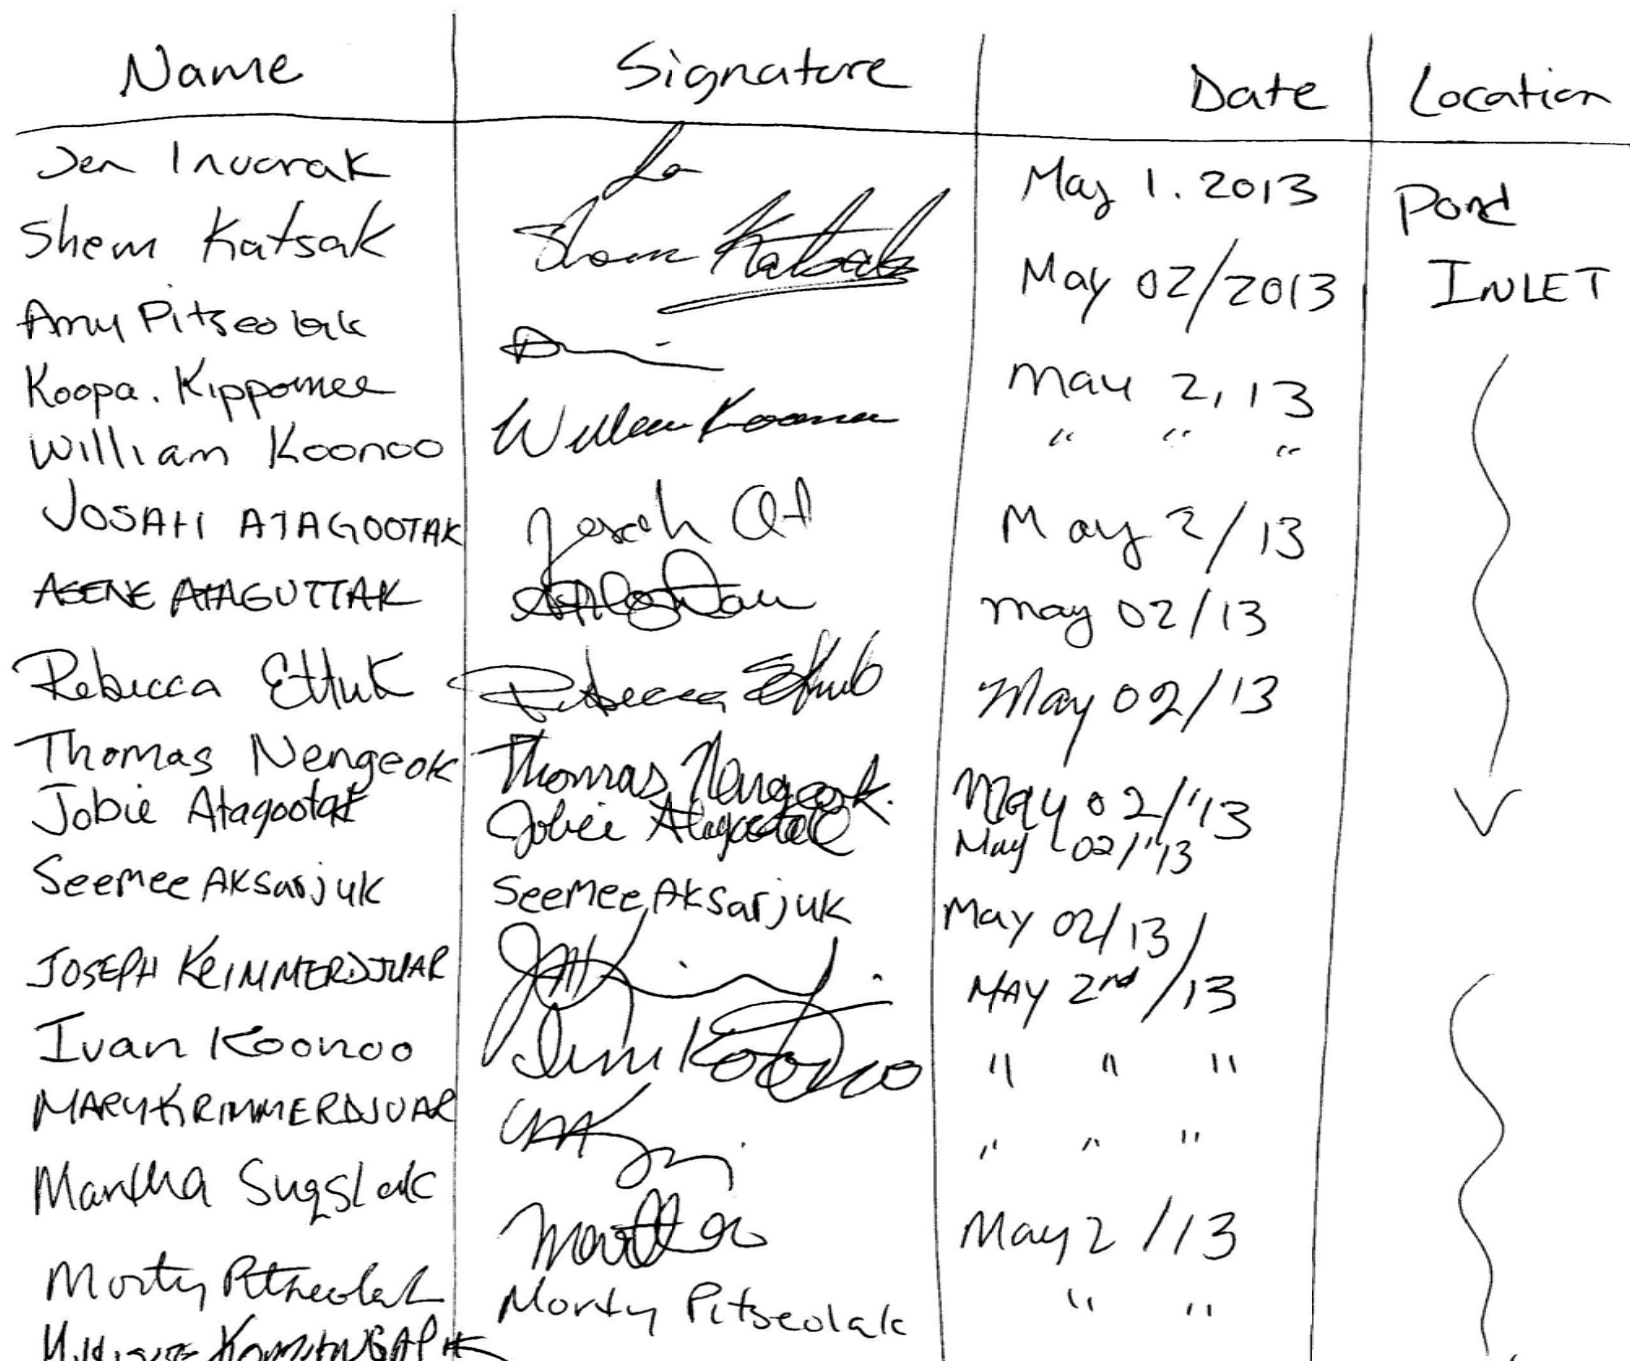 Name Signature Date Location
Jen Inuarak May 1. 2013 Pond
Shem Katsak Shem Katsak May 02/2013 INLET
Amy Pitseolak
Koopa. Kippomee May 2, 13
William Koonoo William Koonoo " " "
JOSAH ATAGOOTAK Josah At May 2/13
ATAGUTTAK May 02/13
Rebecca Ettuk Rebecca May 02/13
Thomas Nengeok Thomas Nengeok. May 02/'13
Jobie Atagootak Jobie Atagootak May 02/'13
SeeMee Aksarjuk SeeMee Aksarjuk May 02/13/
JOSEPH KRIMMERDJUAR MAY 2nd/13
Ivan Koonoo Koonoo " " "
MARY KRIMMERDJUAR " " "
Martha Martha May 2/13
Morty Pitseolak Morty Pitseolak " "